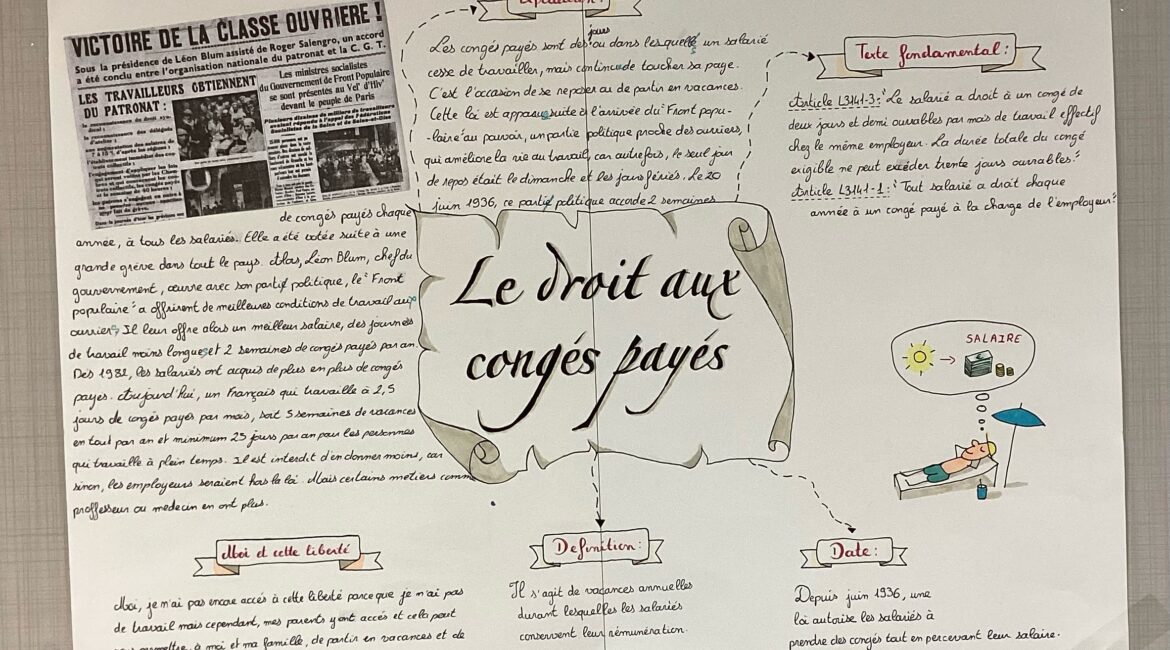 VICTOIRE DE LA CLASSE OUVRIERE !
Sous la présidence de Léon Blum assisté de Roger Salengro, un accord
a été conclu entre l'organisation nationale du patronat et la C. G. T.
LES TRAVAILLEURS OBTIENNENT
DU PATRONAT :
Les ministres socialistes
du Gouvernement de Front Populaire
se sont présentés au Vel' d'Hiv'
devant le peuple de Paris
Les congés payés sont des jours ou dans lesquelle un salarié
cesse de travailler, mais continue de toucher sa paye.
C'est l'occasion de se reposer au de partir en vacances.
Cette loi est apparue suite à l'arrivée du "Front popu-
-laire" au pouvoir, un partie politique proche des ouvriers,
qui améliore la vie au travail, car autrefois, le seul jour
de repos était le dimanche et les jours fériés. Le 20
juin 1936, ce partie politique accorde 2 semaines
de congés payés chaque
année, à tous les salariés. Elle a été votée suite à une
grande grève dans tout le pays. Alors, Léon Blum, chef du
gouvernement, œuvre avec son partie politique, le "Front
populaire" a offrirent de meilleures conditions de travail aux
ouvriers. Il leur offre alors un meilleur salaire, des journées
de travail moins longues et 2 semaines de congés payés par an.
Dès 1982, les salariés ont acquis de plus en plus de congés
payés. Aujourd'hui, un Français qui travaille à 2,5
jours de congés payés par mois, soit 5 semaines de vacances
en tout par an et minimum 25 jours par an pour les personnes
qui travaille à plein temps. Il est interdit d'en donner moins, car
sinon, les employeurs seraient hors la loi. Mais certains métiers comme
proffesseur ou medecin en ont plus.
Texte fondamental :
Article L3141-3 : "Le salarié a droit à un congé de
deux jours et demi ouvrables par mois de travail effectif
chez le même employeur. La durée totale du congé
exigible ne peut excéder trente jours ouvrables."
Article L3141-1 : "Tout salarié a droit chaque
année à un congé payé à la charge de l'employeur."
Le droit aux
congés payés
SALAIRE
Moi et cette liberté
Moi, je n'ai pas encore accés à cette liberté parce que je n'ai pas
de travail mais cependant, mes parents y ont accés et cela peut
nous permettre, à moi et ma famille, de partir en vacances et de
Definition :
Il s'agit de vacances annuelles
durant lesquelles les salariés
conservent leur rémunération.
Date :
Depuis juin 1936, une
loi autorise les salariés à
prendre des congés tout en percevant leur salaire.